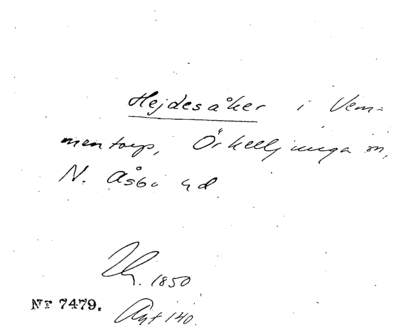 Hejdesåker i Vem-
mentorp, Örkelljunga sn,
N. Åsbo hd
1850
Nr 7479.
140.